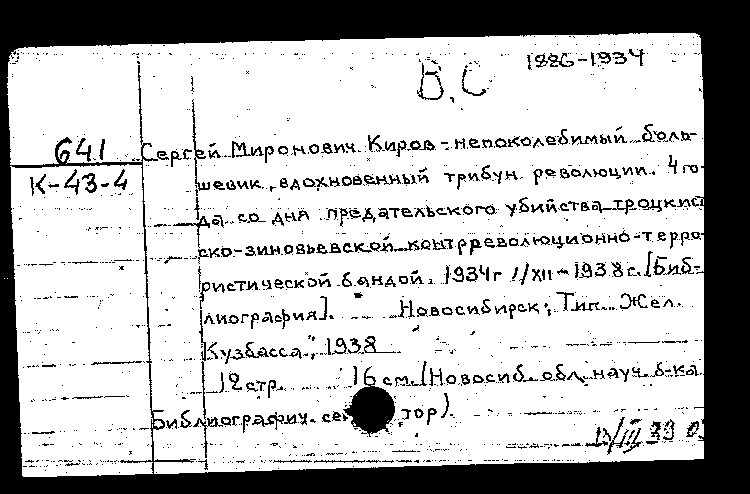 1886-1934
В.С
641
К-43-4
Сергей Миронович Киров - непоколебимый боль-
шевик, вдохновенный трибун революции. 4 го-
да со дня предательского убийства троцкист
ско-зиновьевской контрреволюционно-терро-
ристической бандой. 1934г 1/XII - 1938г. [Биб-
лиография]. Новосибирск; Тип. "Жел.
Кузбасса", 1938
12 стр. 16 см. (Новосиб. обл. науч. б-ка
Библиографич. се тор).
/III 39